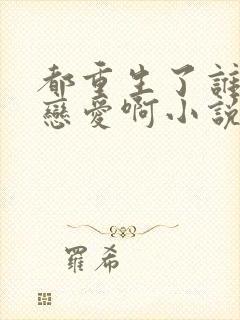 都重生了誰
戀愛啊小說
羅希